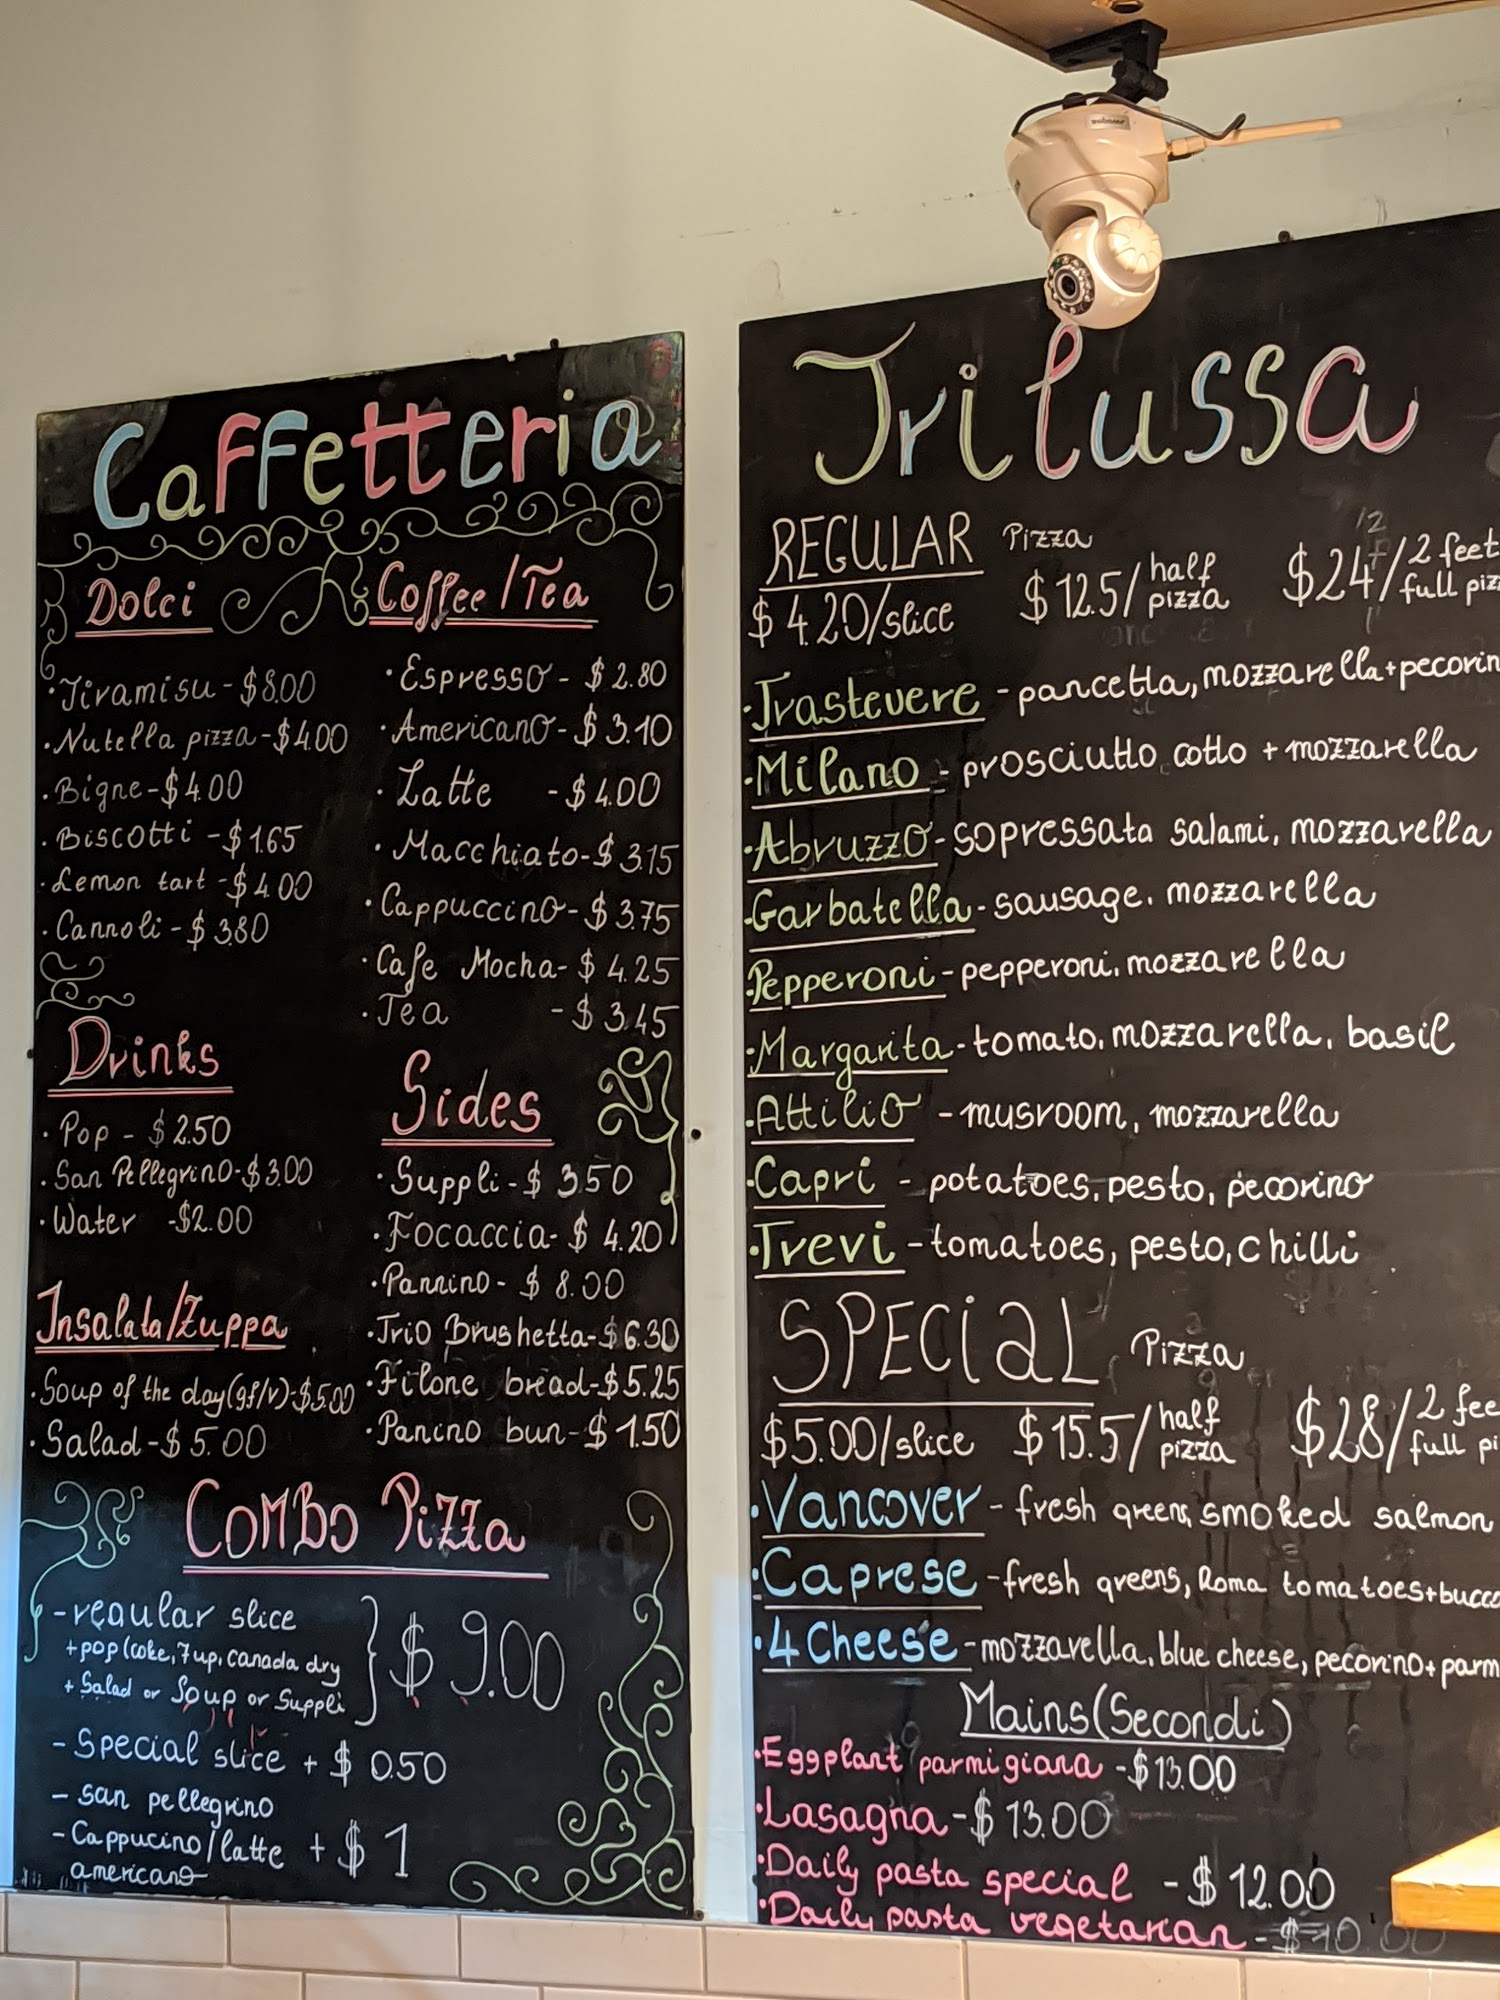 Caffetteria
Dolci
·Tiramisu-$8.00
·Nutella pizza-$4.00
·Bigne-$4.00
·Biscotti -$1.65
·Lemon tart -$4.00
·Cannoli-$3.80
Drinks
·Pop - $2.50
·San Pellegrino-$3.00
·Water -$2.00
Insalata/Zuppa
·Soup of the day(gf/v)-$5.00
·Salad-$5.00
Coffee/Tea
·Espresso- $2.80
·Americano-$3.10
·Latte -$4.00
·Macchiato-$3.15
·Cappuccino-$3.75
·Cafe Mocha-$4.25
·Tea -$3.45
Sides
·Suppli-$3.50
·Focaccia-$4.20
·Pannino-$8.00
·Trio Brushetta-$6.30
·Filone bread-$5.25
·Panino bun-$1.50
Combo Pizza
-regular slice
+pop(coke,7up,canada dry
+Salad or Soup or Suppli
$9.00
-Special slice +$0.50
-san pellegrino
-Cappucino/latte +$1
americano
Trilussa
REGULAR Pizza
$4.20/slice $12.5/half pizza $24/2 feet full piz
·Trastevere -pancetta,mozzarella+pecorin
·Milano -prosciutto cotto +mozzarella
·Abruzzo-sopressata salami, mozzarella
·Garbatella-sausage. mozzarella
·Pepperoni-pepperoni.mozzarella
·Margarita-tomato, mozzarella, basil
·Attilio -musroom, mozzarella
·Capri -potatoes, pesto, pecorino
·Trevi -tomatoes, pesto, chilli
SPECiaL Pizza
$5.00/slice $15.5/half pizza $28/2 fee full pi
·Vancover -fresh greens, smoked salmon
·Caprese -fresh greens, Roma tomatoes+bucco
·4 Cheese-mozzarella, blue cheese, pecorino+parm
Mains(Secondi)
·Eggplant parmigiana -$13.00
·Lasagna-$13.00
·Daily pasta special -$12.00
·Daily pasta vegetarian-$10.00